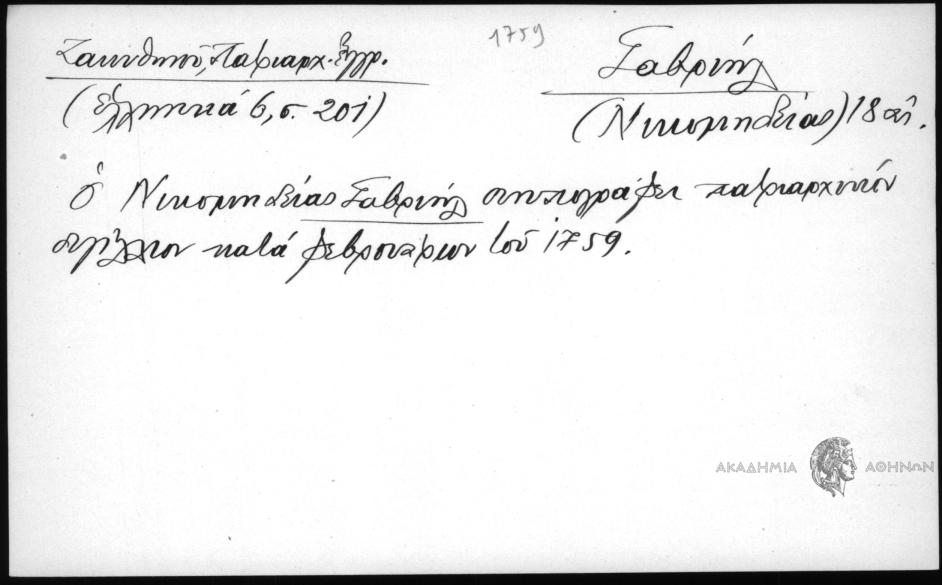 1759
Ζακυθηνοῦ, Πατριαρχ. ἔγγρ.
(Ἑλληνικά 6, σ. 201)
Γαβριήλ
(Νικομηδείας) 18 αἰ.
ὁ Νικομηδείας Γαβριήλ συνυπογράφει πατριαρχικόν
σιγίλλιον κατά φεβρουάριον τοῦ 1759.
ΑΚΑΔΗΜΙΑ ΑΘΗΝΩΝ